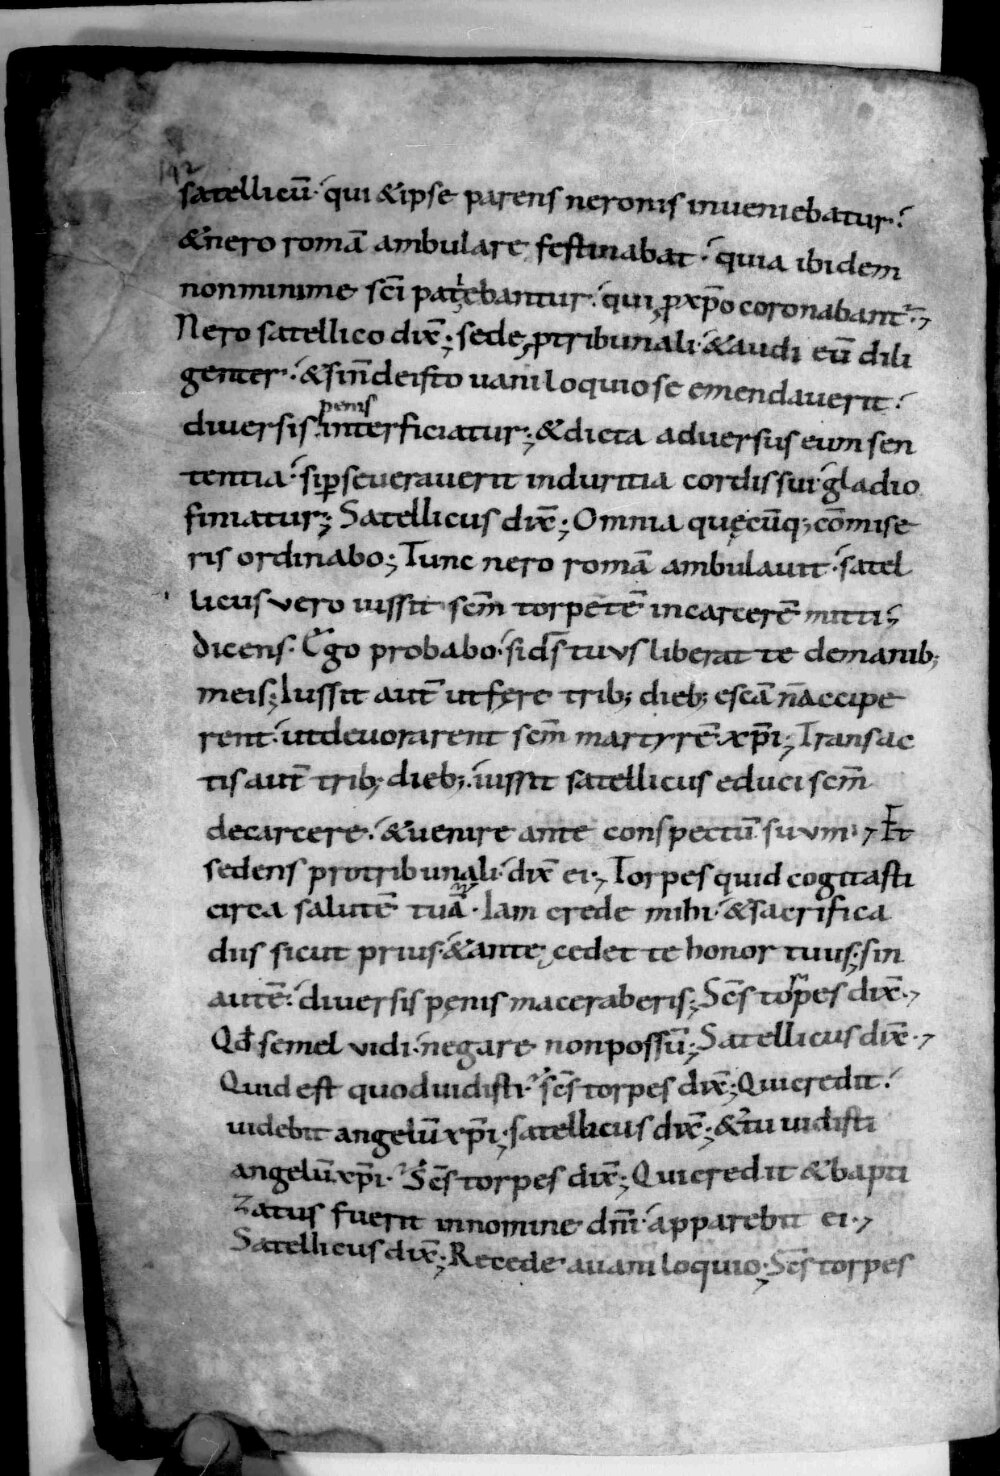 192
satellicū· qui &ipse parens neronis inueniebatur·
&nero romā ambulare festinabat· quia ibidem
nonminime sc̄i patiebantur· qui ꝓxp̄o coronabant̄·
Nero satellico dix̄; sede ꝓtribunali· &audi eū dili
genter· &sin̄deisto uaniloquiose emendauerit·
diuersis penis interficiatur; &dicta aduersus eum sen
tentia· siꝑseuerauerit induritia cordis sui gladio
finiatur; Satellicus dix̄; Omnia quęcūq; cōmise
ris ordinabo; Tunc nero romā ambulauit· satel
licus vero iussit sc̄m torpetē incarcerē mitti;
dicens· Ego probabo· sids̄ tuvs liberat te demanib;
meis; Iussit aut̄ utfęre trib; dieb; escā n̄accipe
rent· utdeuorarent sc̄m martyrē xp̄i; Transac
tis aut̄ trib; dieb;· iussit satellicus educi sc̄m
decarcere· &uenire ante conspectū suvm; Et
sedens protribunali· dix̄ ei; Torpes quid cogitasti
circa salutē tuā· Iam crede mihi· &sacrifica
diis sicut prius· &antecedet te honor tuus; sin
autē· diuersis pęnis maceraberis; Sc̄s torpes dix̄;
Qd̄ semel vidi· negare nonpossū; Satellicus dix̄;
Quid est quoduidisti· sc̄s torpes dix̄; Quicredit·
uidebit angelū xp̄i; satellicus dix̄; &tu uidisti
angelū xp̄i· Sc̄s torpes dix̄; Quicredit &bapti
zatus fuerit innomine dn̄i· apparebit ei;
Satellicus dix̄; Recede auaniloquio; Sc̄s torpes